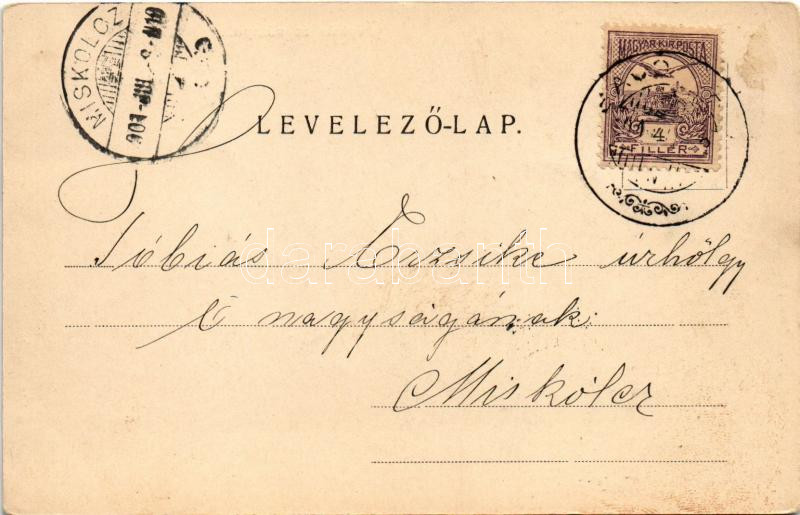 MISKOLCZ
MAGYAR KIR. POSTA
FILLÉR
LEVELEZŐ-LAP.
Tóbiás Erzsike úrhölgy
Ő nagyságának
Miskólcz
darabanth